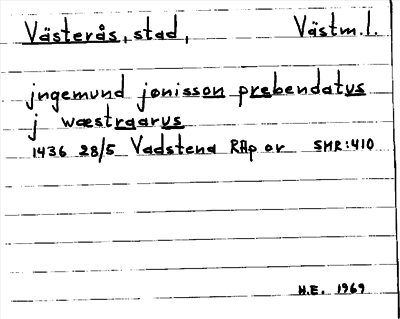 Västerås, stad, Västm.l.
jngemund jønisson prebendatus
j wæstraarus
1436 28/5 Vadstena RAp or SMR:410
H.E. 1969